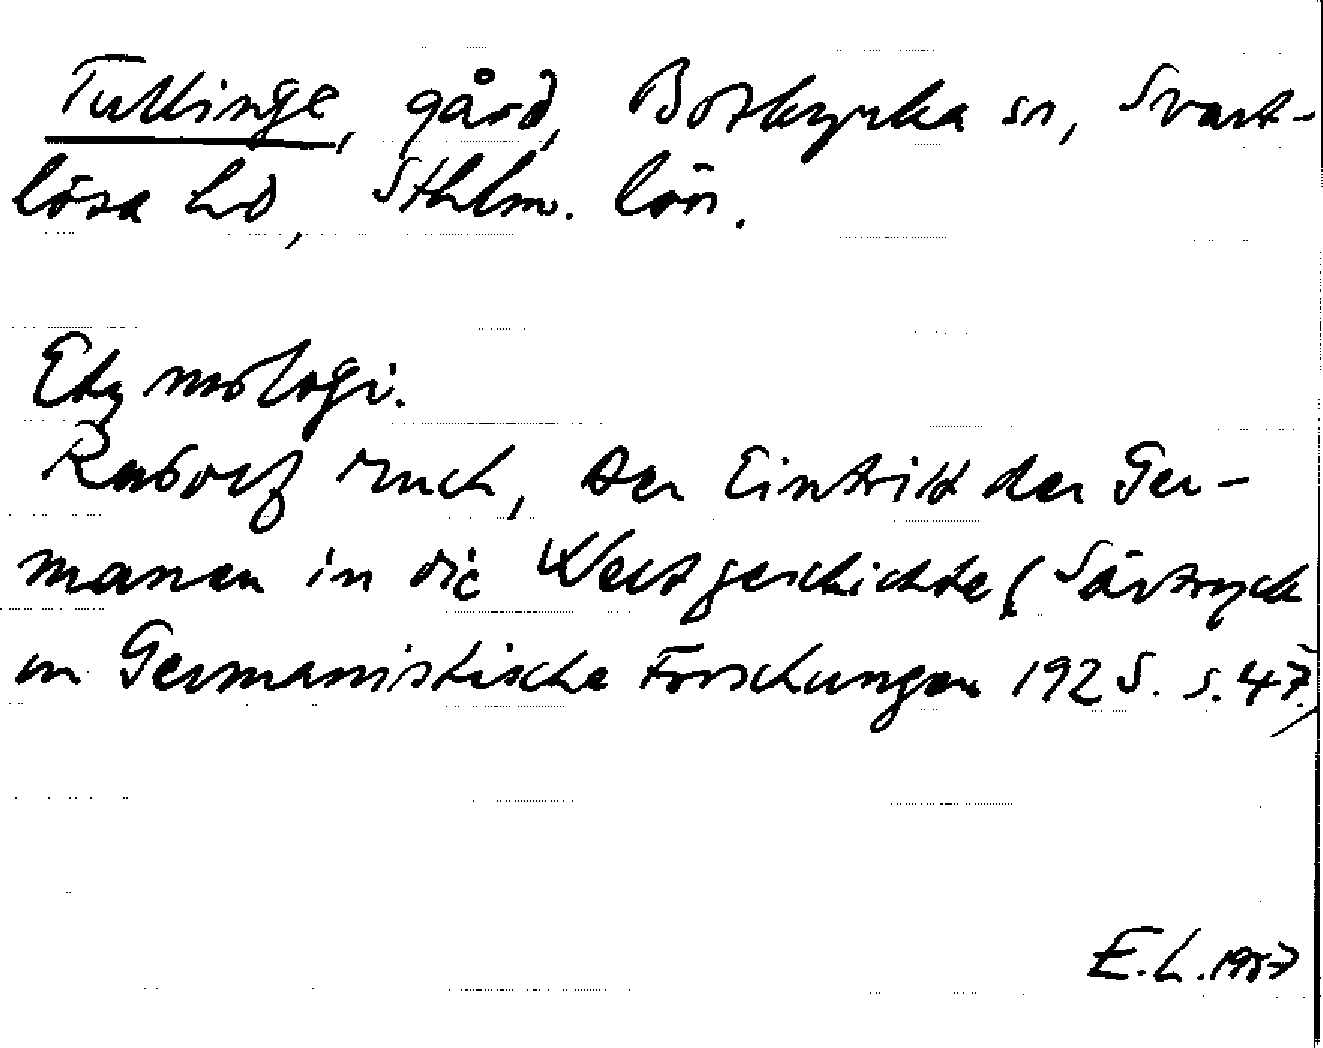 Tullinge, gård, Botkyrka sn, Svart-
lösa hd, Sthlm. län.
Etymologi.
Rudolf Much, Der Eintritt der Ger-
manen in die Weltgeschichte (Särtryck
ur Germanistische Forschungen 1925. s. 47.)
E.L.